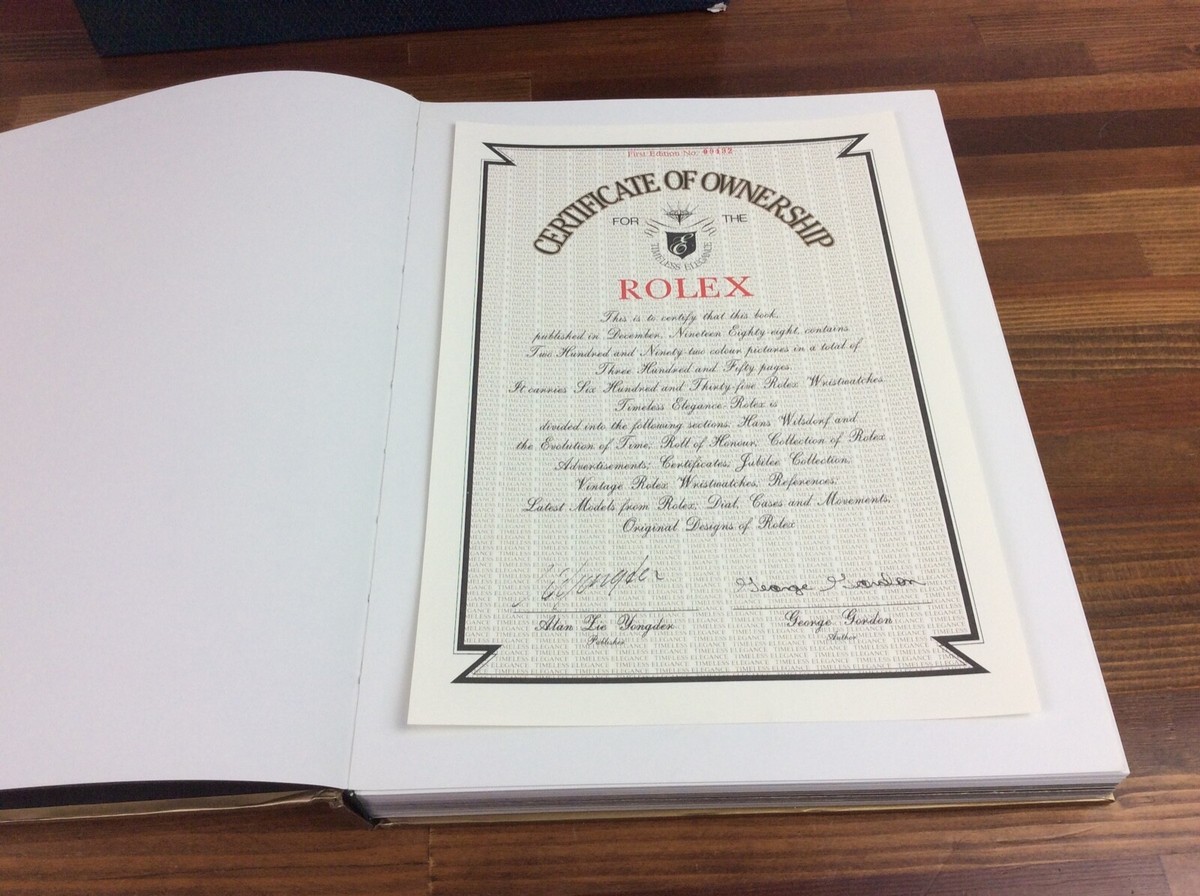 First Edition No.
CERTIFICATE OF OWNERSHIP
FOR THE
E
TIMELESS ELEGANCE
ROLEX
This is to certify that this book,
published in December, Nineteen Eighty-eight, contains
Two Hundred and Ninety-two colour pictures in a total of
Three Hundred and Fifty pages.
It carries Six Hundred and Thirty-five Rolex Wristwatches.
Timeless Elegance-Rolex is
divided into the following sections, Hans Wilsdorf and
the Evolution of Time; Roll of Honour; Collection of Rolex
Advertisements; Certificates; Jubilee Collection;
Vintage Rolex Wristwatches; References;
Latest Models from Rolex; Dial, Cases and Movements;
Original Designs of Rolex
George Gordon
Alan Zie Yongder George Gordon
Publisher Author